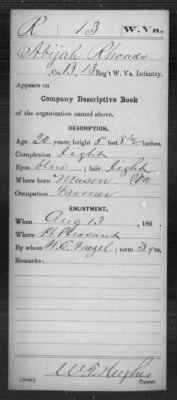 R 13 W. Va.
Abijah Rhoads
Co. B, 13 Reg't W. Va. Infantry.
Appears on
Company Descriptive Book
of the organization named above.
DESCRIPTION.
Age 20 years; height 5 feet 8½ inches.
Complexion Light
Eyes Blue; hair Light
Where born Mason Va
Occupation Farmer
ENLISTMENT.
When Aug 13, 186 .
Where Pt Pleasant
By whom W. C. ; term 3 y'rs.
Remarks:
W. T. Hughes
Copyist.